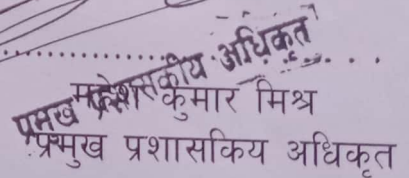 प्रमुख प्रशासकीय अधिकृत
महेश कुमार मिश्र
प्रमुख प्रशासकिय अधिकृत